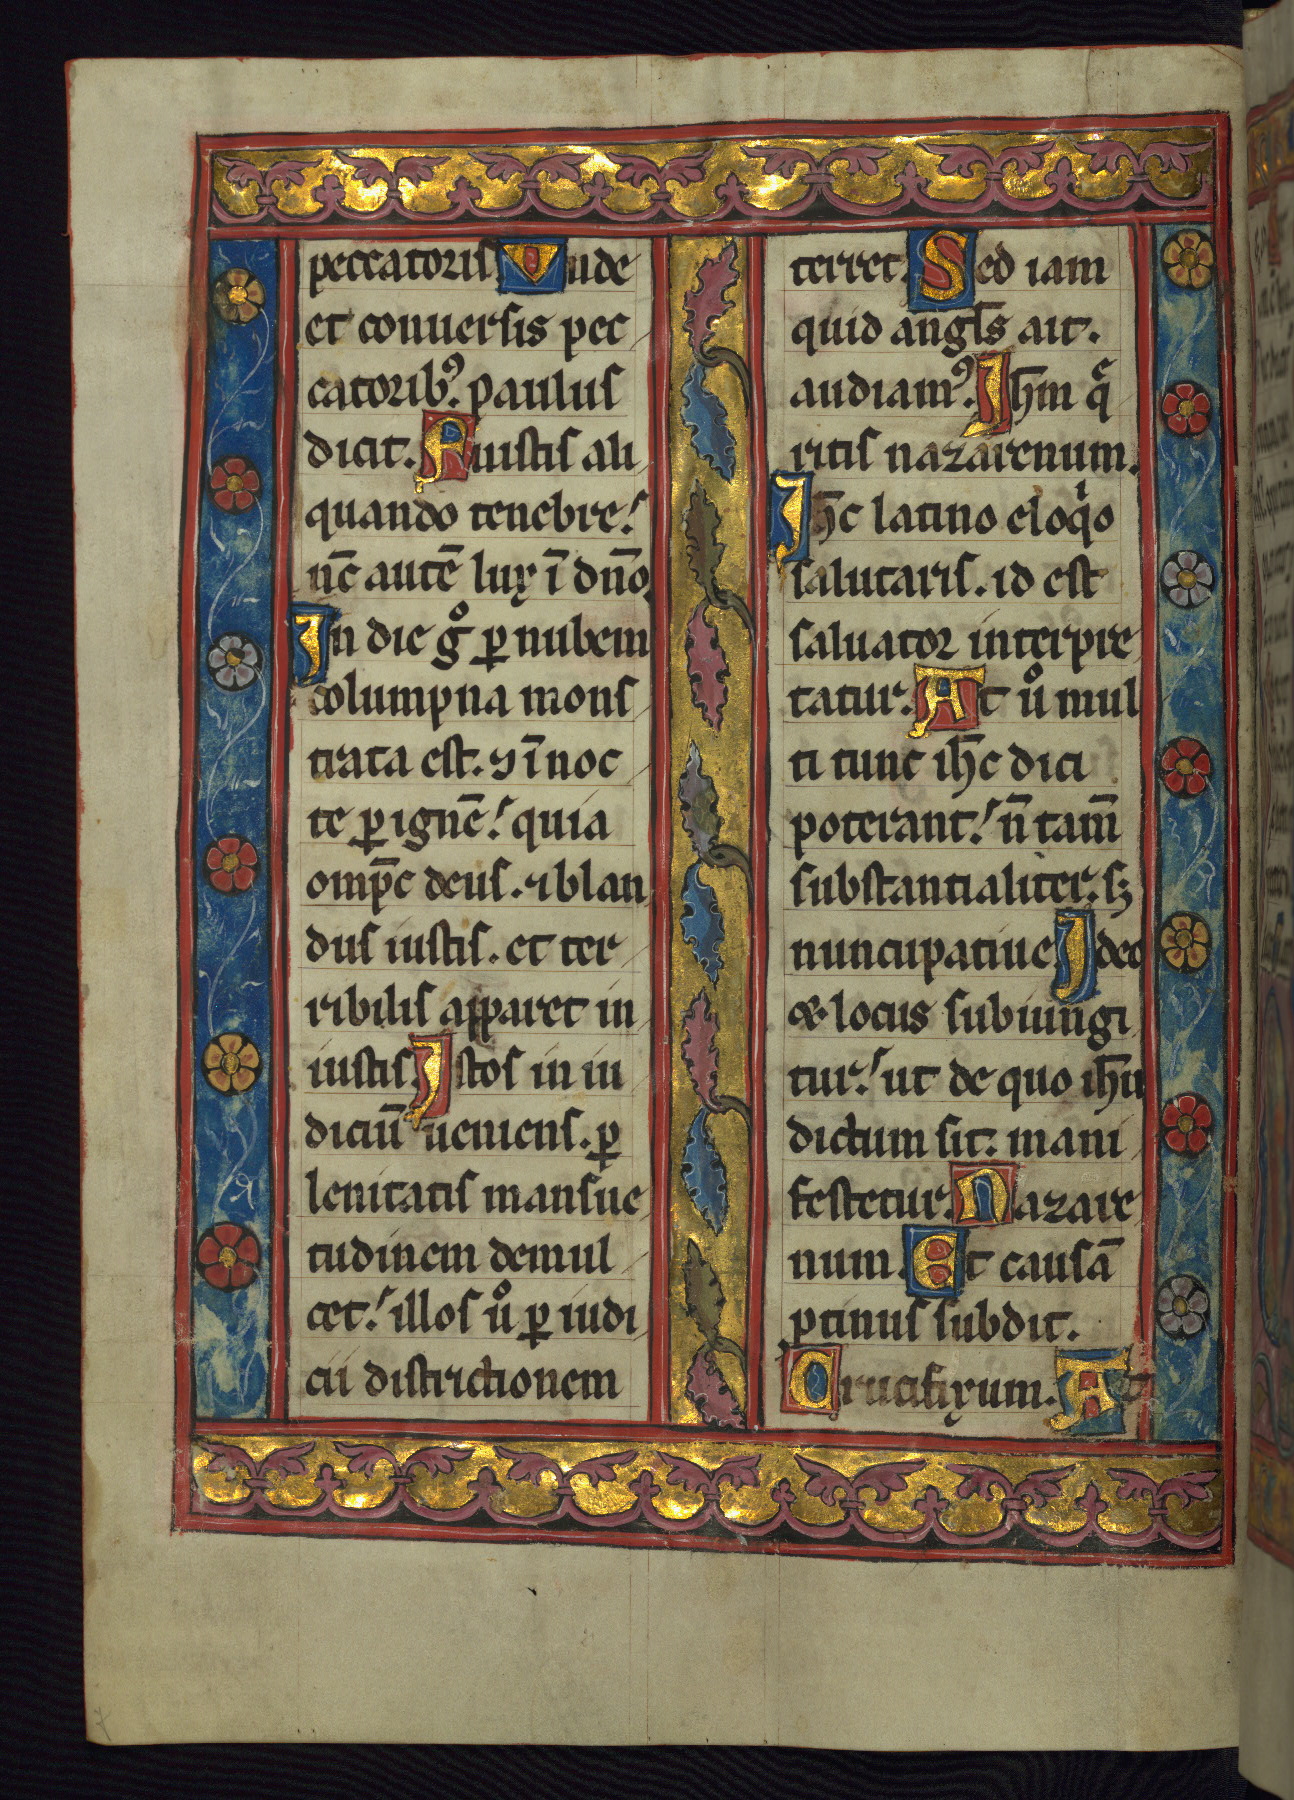 peccatoris Unde
et conuersis pec
catorib⁹. paulus
dicit. Fuistis ali
quando tenebre!
nc̄ autē lux ī dn̄o.
In die gͦ ꝑ nubem
columpna mons
trata est. ⁊ ī noc
te ꝑ ignē! quia
omp̄c deus. ⁊ blan
dus iustis. et ter
ribilis apparet in
iustis. Istos in iu
diciū ueniens. ꝑ
lenitatis mansue
tudinem demul
cet! illos uͦ ꝑ iudi
cii districtionem
terret. Sed iam
quid angl̄s ait.
audiam⁹. Ih̄m q̄
ritis nazarenum.
Ih̄c latino eloqͥo
salutaris. id est
saluator interpre
tatur. At uͦ mul
ti tunc ih̄c dici
poterant! n̄ tam̄
substantialiter. sꝫ
nuncupatiue Ideo
& locus subiungi
tur! ut de quo ih̄u
dictum sit. mani
festetur. Nazare
num. Et causā
ꝓtinus subdit.
Crucifixum. At